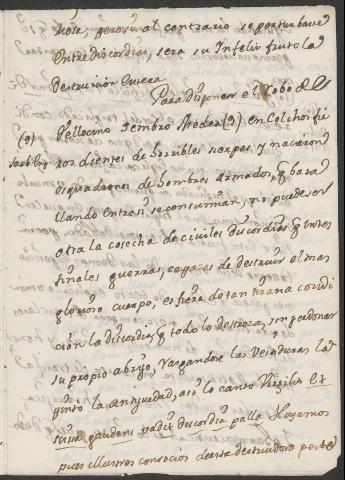 nosa, pero si al contrario se perturbase
entre discordias, sera su infeliz fruto la
destruicion entera
Para disponer el Robo del
(9) Vellocino sembro Medea (9) en Colchos fie
ros dientes de horribles sierpes y nacieron
esquadrones de hombres armados, q basa
llando entre si se consumian, no puede ser
otra la cosecha de civiles discordias q intes
tinales guerras, capazes de destruir el mas
glorioso cuerpo, es fiera de tan tirana condi
cion la discordia, q todo lo destroza, sin perdonar
su propio abrigo, rasgandose las vestiduras, la
pinto la antiguedad, asi lo canto Virgilio Et
scissa gaudens vadit discordia palla Huyamos
pues illustres consocios de esta destruidora peste